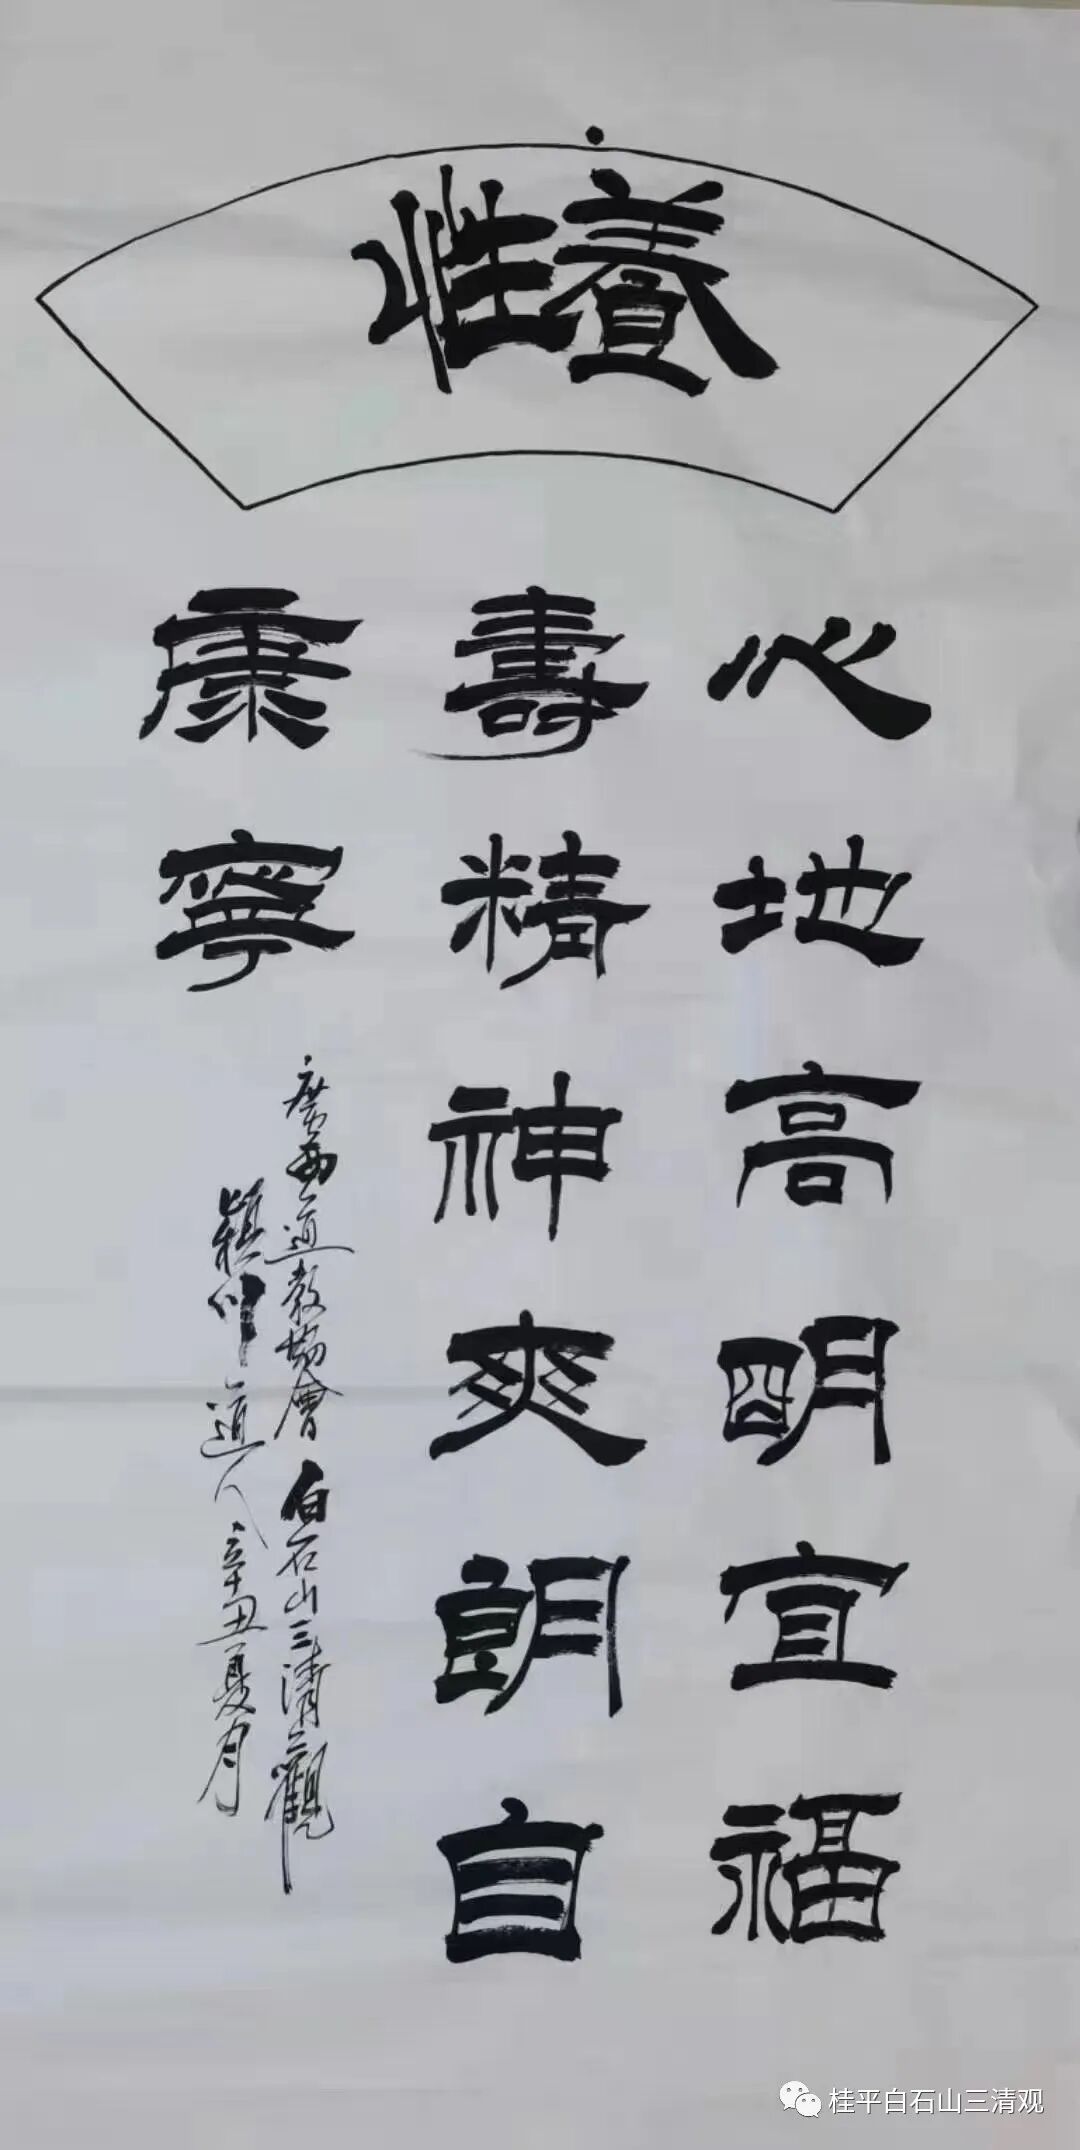 養性
心地高明宜福
壽精神爽朗自
康寧
廣西道教協會白石山三清觀
穎川道人辛丑夏月
桂平白石山三清观